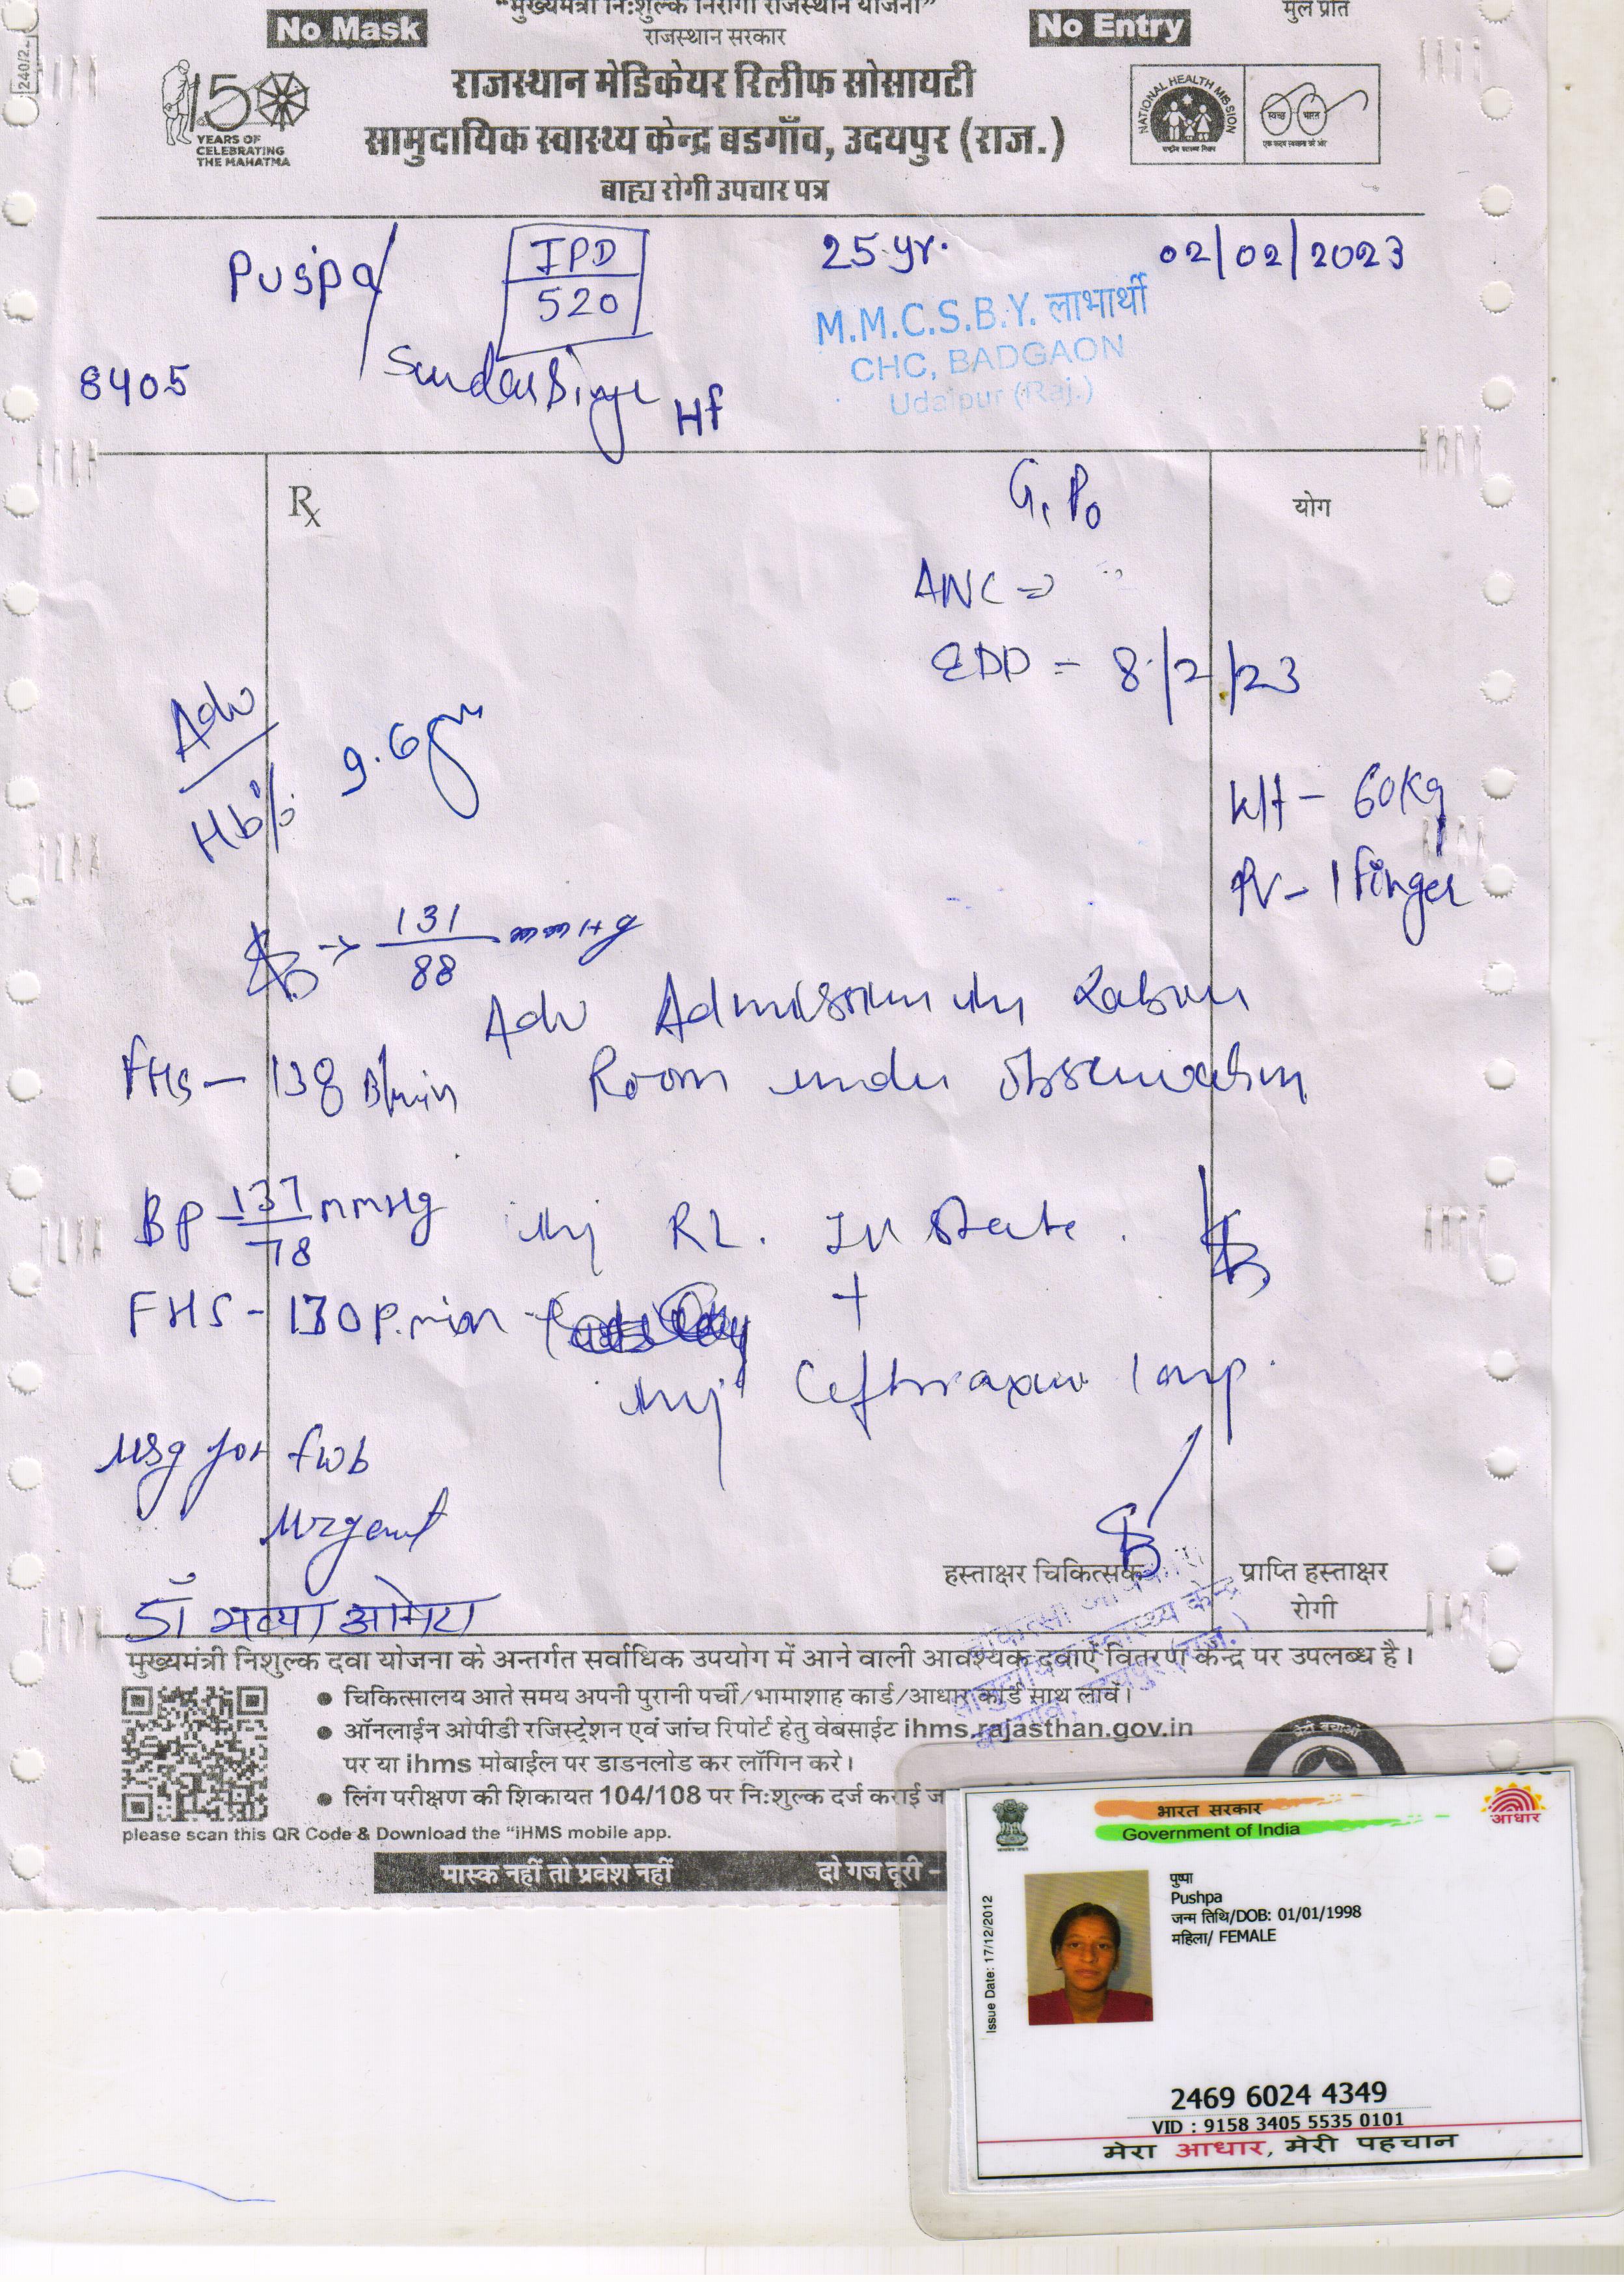 240/2
No Mask
"मुख्यमंत्री नि:शुल्क निरोगी राजस्थान योजना"
No Entry
मुल प्रति
राजस्थान सरकार
150
YEARS OF
CELEBRATING
THE MAHATMA
राजस्थान मेडिकेयर रिलीफ सोसायटी
सामुदायिक स्वास्थ्य केन्द्र बडगाँव, उदयपुर (राज.)
बाह्य रोगी उपचार पत्र
NATIONAL HEALTH MISSION
राष्ट्रीय स्वास्थ्य मिशन
स्वच्छ भारत
एक कदम स्वच्छता की ओर
Puspa
IPD
520
25 yr.
02/02/2023
M.M.C.S.B.Y. लाभार्थी
CHC, BADGAON
Udaipur (Raj.)
8405
Hf
Rx
G1 P0
योग
ANC =>
EDD = 8/2/23
Adv
Hb% 9.6gm
Wt - 60Kg
PV - 1 Finger
131/88 mmHg
Adv Admission in Labour
FHS - 138 B/min
Room under observation
BP 137/78 mmHg
inj RL. IV State.
FHS - 130 P.min
+
inj Ceftriaxone 1 amp.
Usg for fwb
Urgent
हस्ताक्षर चिकित्सक
प्राप्ति हस्ताक्षर
रोगी
डॉ भव्या आमेटा
मुख्यमंत्री निशुल्क दवा योजना के अन्तर्गत सर्वाधिक उपयोग में आने वाली आवश्यक दवाऐं वितरण केन्द्र पर उपलब्ध है।
● चिकित्सालय आते समय अपनी पुरानी पर्ची/भामाशाह कार्ड/आधार कार्ड साथ लावें।
● ऑनलाईन ओपीडी रजिस्ट्रेशन एवं जांच रिपोर्ट हेतु वेबसाईट ihms.rajasthan.gov.in
पर या ihms मोबाईल पर डाडनलोड कर लॉगिन करे।
● लिंग परीक्षण की शिकायत 104/108 पर नि:शुल्क दर्ज कराई ज
please scan this QR Code & Download the "iHMS mobile app.
मास्क नहीं तो प्रवेश नहीं
दो गज दूरी -
भारत सरकार
Government of India
आधार
Issue Date: 17/12/2012
पुष्पा
Pushpa
जन्म तिथि/DOB: 01/01/1998
महिला/ FEMALE
2469 6024 4349
VID : 9158 3405 5535 0101
मेरा आधार, मेरी पहचान